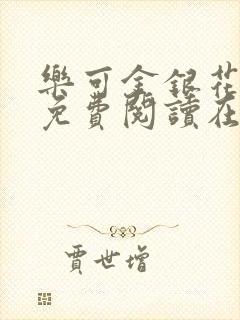 樂可金銀花
免費閱讀在
賈世增